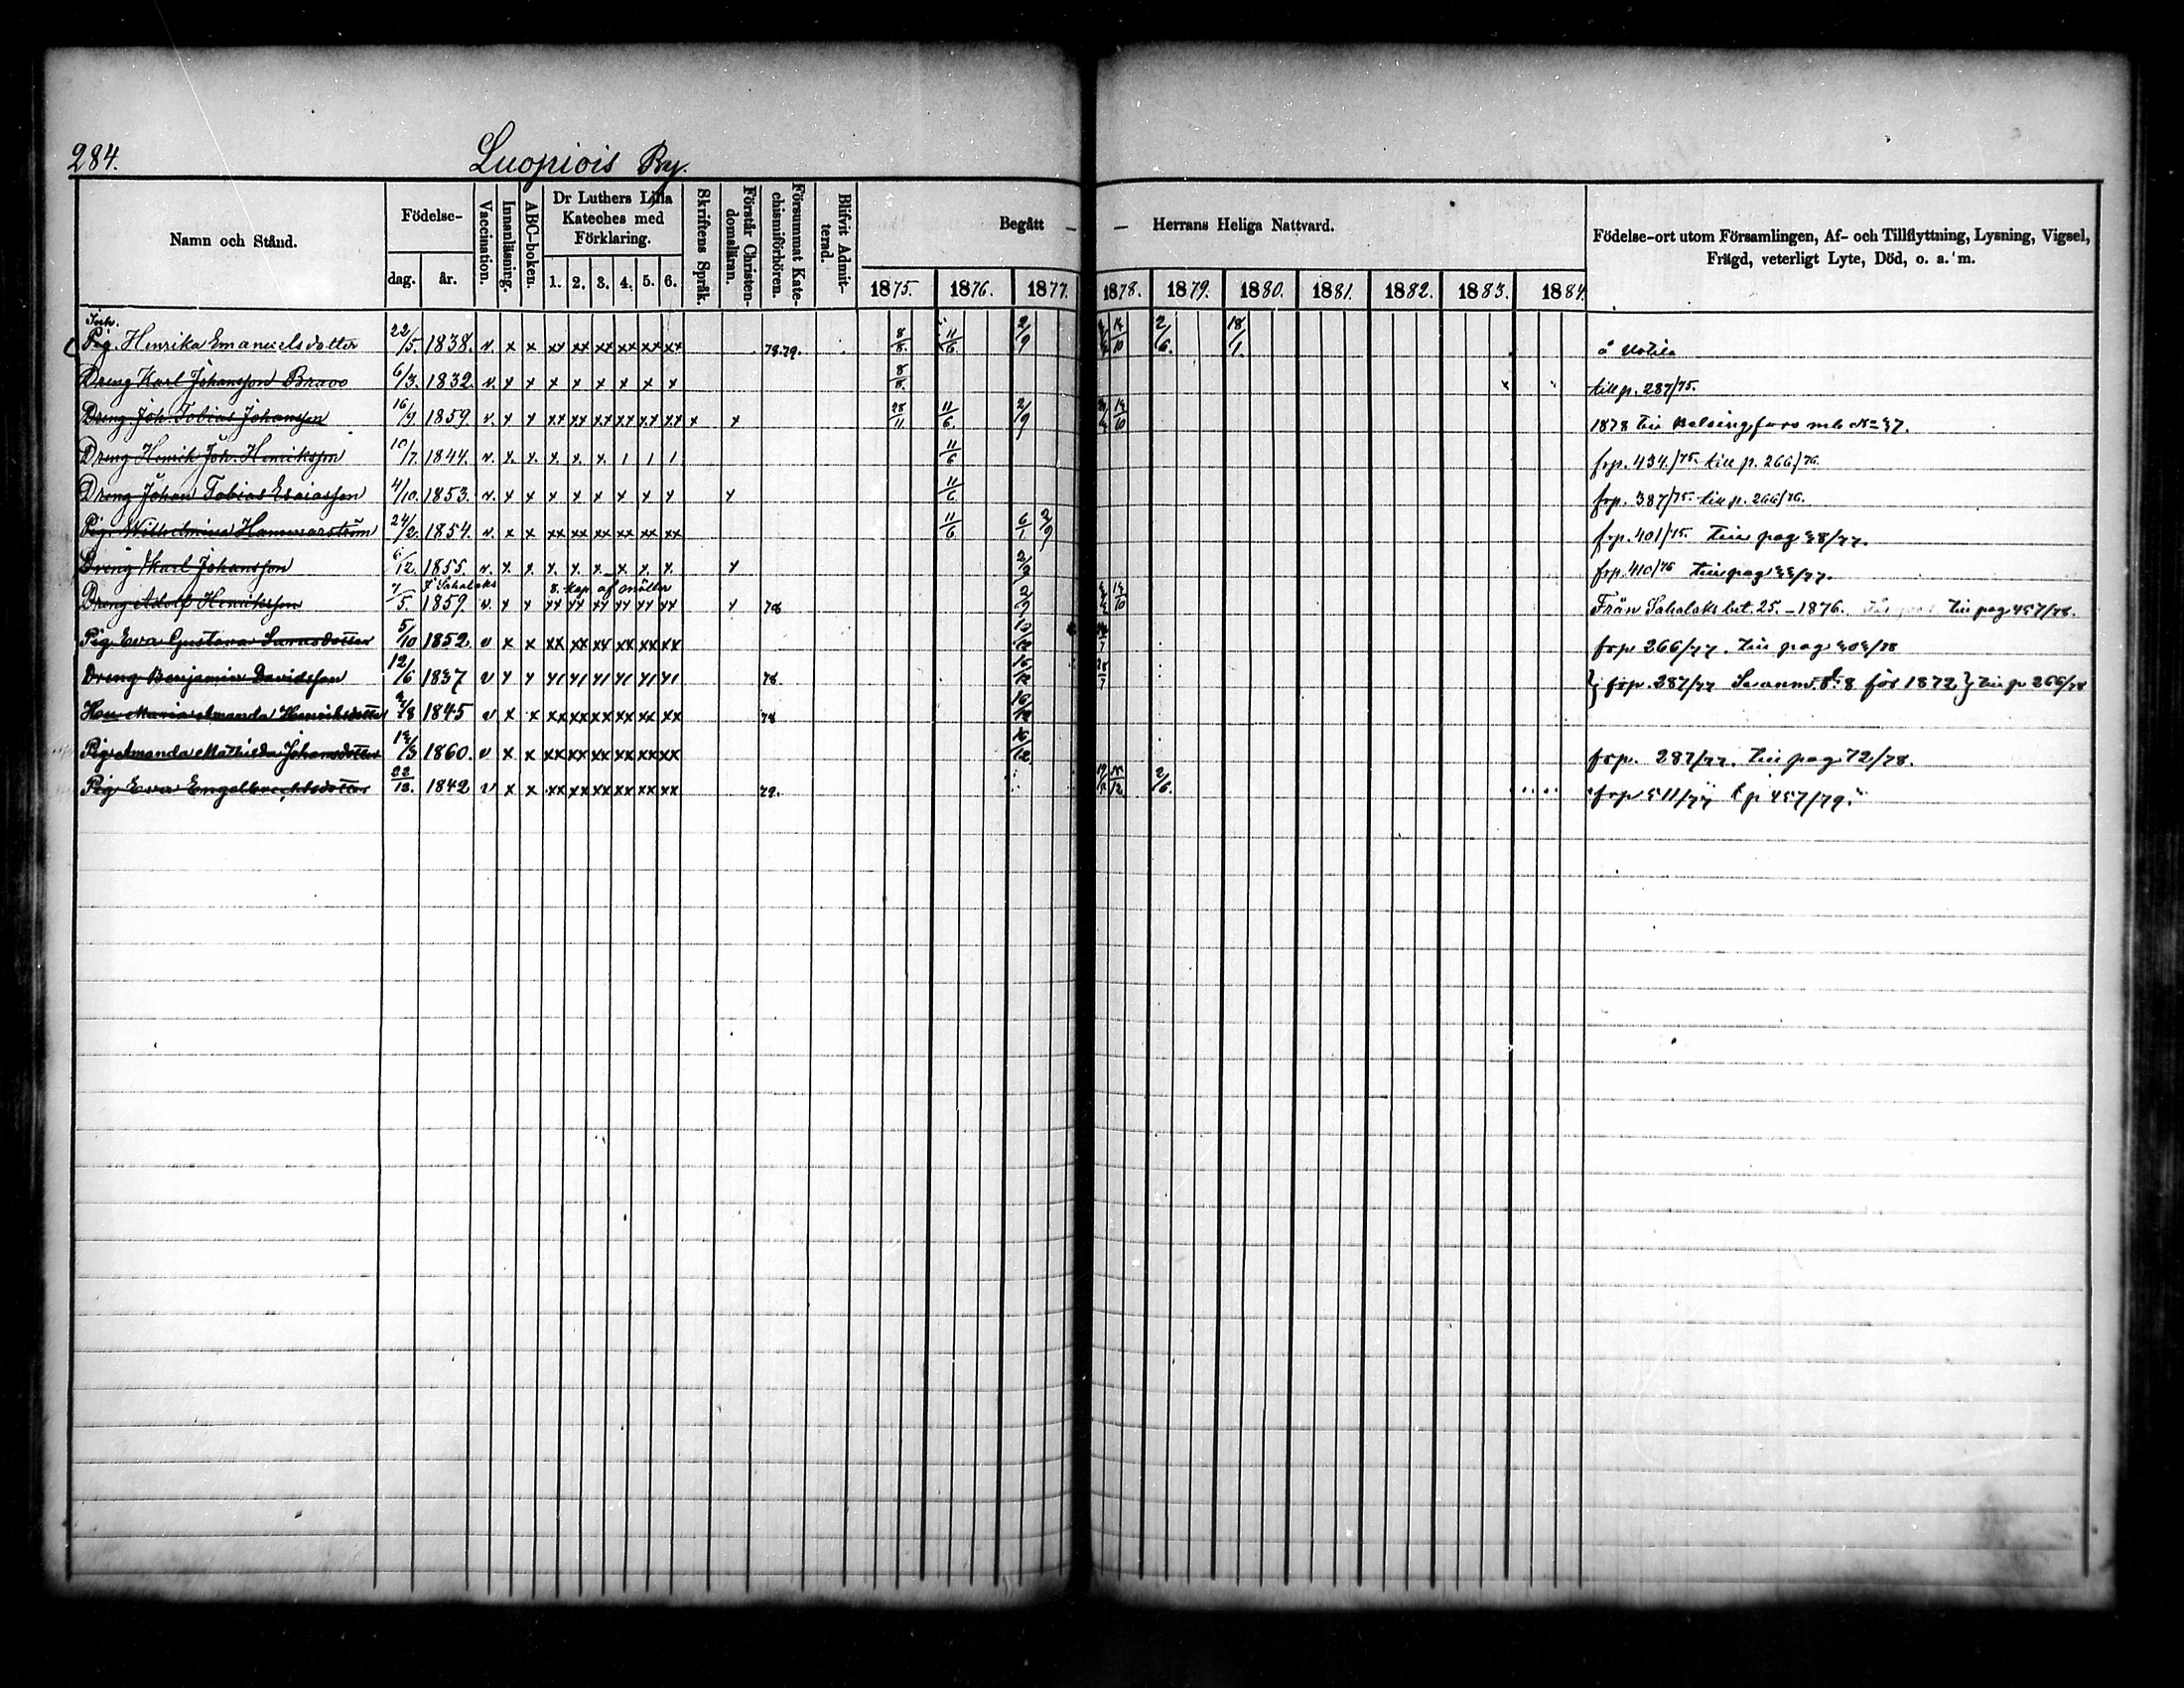 284. Luopiois By.
Namn och Stånd. Födelse- dag. år. Vaccination. Innanläsning. ABC-boken. Dr Luthers Lilla Kateches med Förklaring. 1. 2. 3. 4. 5. 6. Skriftens Språk. Förstår Christen-domsläran. Försummat Kate-chismiförhören. Blifvit Admit-terad. Begått — 1875. 1876. 1877. — Herrans Heliga Nattvard. 1878. 1879. 1880. 1881. 1882. 1883. 1884. Födelse-ort utom Församlingen, Af- och Tillflyttning, Lysning, Vigsel, Frägd, veterligt Lyte, Död, o. a. m.
Inh.
Pig. Henrika Emanuelsdotter 22/5. 1838. v. x x xx xx xx xx xx xx 78.79. 8/8. 11/6. 2/9 14/10 2/6. 18/1. å Uotila
Dreng Karl Johansson Bravo 6/3. 1832. v. x x x x x x x x 8/8. till p. 287/75.
Dreng Joh. Tobias Johansson 16/9. 1859. v. x x xx xx xx xx xx xx x x 28/11 11/6. 2/9 14/10 1878 till Helsingfors mb No 37.
Dreng Henrik Joh. Henriksson 10/7. 1844. v. x. x. x. x. x. 1 1 1 11/6 frp. 434./75. till p. 266/76.
Dreng Johan Tobias Esaiasson 4/10. 1853. v. x x x x x x x x x 11/6. frp. 387/75 till p. 266/76.
Pig. Wilhelmina Hammarström 24/2. 1854. v. x x xx xx xx xx xx xx 11/6 6/1 2/9 frp. 401/75. till pag 38/77.
Dreng Karl Johansson 6/12. 1855. v. x x. x. x. x. x x. x. x 2/3 frp. 410/76 till pag 33/77.
F. Sahalaks 8 Kap. af
Dreng Adolf Henriksson 7/5. 1857. v. x x xx xx xx xx xx xx x 78 2/9 14/10 Från Sahalaks bet. 25. - 1876. till pag 457/78.
Pig Eva Gustava 5/10 1852 v x x xx xx xx xx xx xx 10/12 frp 266/77. till pag 303/78
Dreng Benjamin Davidsson 12/6 1837 v x x x1 x1 x1 x1 x1 x1 78 16/12 frp. 287/77 Se anm. 8 för 1872 } till p 266/78
Hu. Maria Amanda Henriksdotter 1845 v x x xx xx xx xx xx xx 78 16/12
Pig Amanda Mathilda Johansdotter 1860. v x x xx xx xx xx xx xx 16/12 frp. 287/77. till pag 72/78.
Pig Eva Engelbrechtsdotter 1842 v x x xx xx xx xx xx xx 79. 2/6. frp 311/77 t p 457/79.